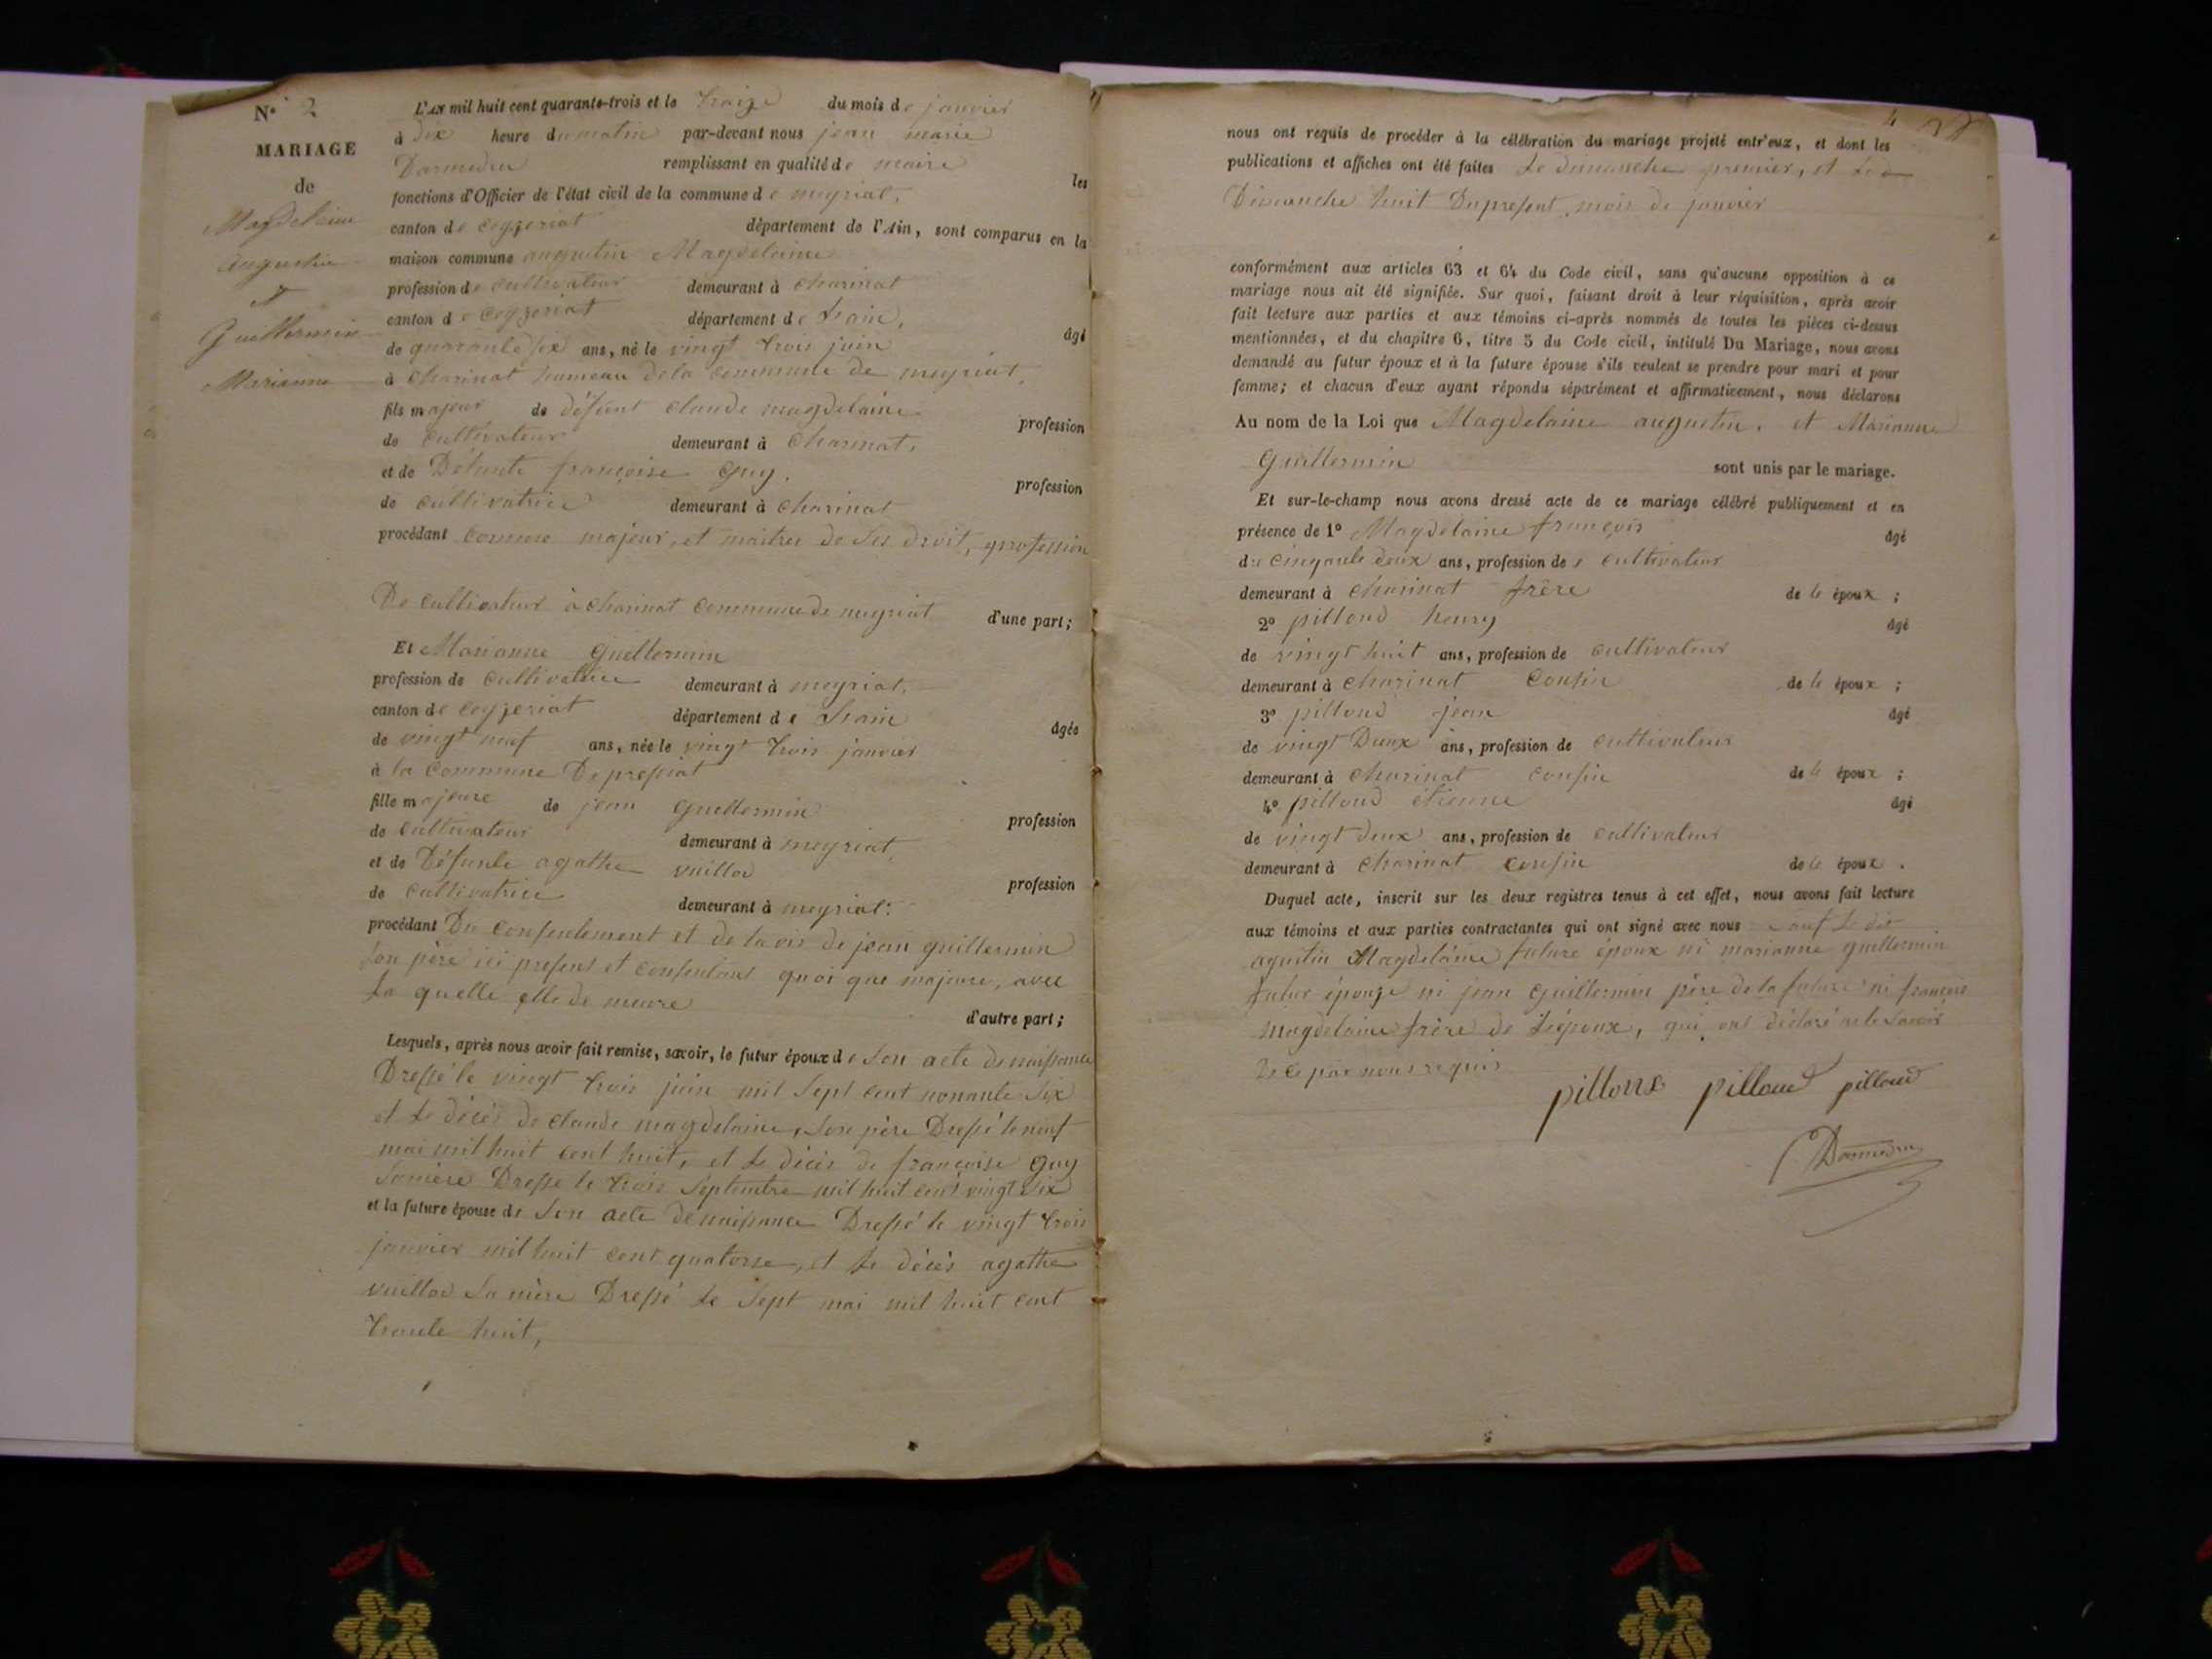 N.° 2
MARIAGE
de
Magdelaine
Augustin
et
Guillermin
Marianne
L'AN mil huit cent quarante-trois et le traize du mois de janvier
à dix heure du matin par-devant nous jean marie
remplissant en qualité de maire les
fonctions d'Officier de l'état civil de la commune de meyriat,
canton de ceyzeriat département de l'Ain, sont comparus en la
maison commune augustin Magdelaine
profession de cultivateur demeurant à charinat
canton de ceyzeriat département de Lain, âgé
de quarante six ans, né le vingt trois juin
à charinat hameau de la commune de meyriat,
fils majeur de défunt claude magdelaine profession
de cultivateur demeurant à charinat,
et de Défunte françoise guy. profession
de cultivatrice demeurant à charinat
procédant comme majeur, et maitre de Ses droit, profession
De cultivateur à charinat commune de meyriat d'une part;
Et Marianne guillermin
profession de cultivatrice demeurant à meyriat,
canton de ceyzeriat département de Lain âgée
de vingt neuf ans, née le vingt trois janvier
à la commune De pressiat
fille majeure de jean guillermin profession
de cultivateur demeurant à meyriat,
et de Défunte agathe vuillod profession
de cultivatrice demeurant à meyriat.
procédant Du consentement et de lavis de jean guillermin
Son père ici present et consentant quoi que majeure, avec
La quelle elle de meure d'autre part;
Lesquels, après nous avoir fait remise, savoir, le futur époux de Son acte de naissance
Dressé le vingt trois juin mil Sept cent nonante Six
et Le décès de claude magdelaine, Son père Dressé le neuf
mai mil huit cent huit, et Le décès de françoise guy
Samère Dressé le trois Septembre mil huit cent vingt Six
et la future épouse de Son acte de naissance Dressé le vingt trois
janvier mil huit cent quatorze, et Le décès agathe
vuillod Sa mère Dressé Le Sept mai mil huit cent
trante huit,
4
nous ont requis de procéder à la célébration du mariage projeté entr'eux, et dont les
publications et affiches ont été faites Le dimanche premier, et Le
Dimanche huit Du present mois de janvier
conformément aux articles 63 et 64 du Code civil, sans qu'aucune opposition à ce
mariage nous ait été signifiée. Sur quoi, faisant droit à leur réquisition, après avoir
fait lecture aux parties et aux témoins ci-après nommés de toutes les pièces ci-dessus
mentionnées, et du chapitre 6, titre 5 du Code civil, intitulé Du Mariage, nous avons
demandé au futur époux et à la future épouse s'ils veulent se prendre pour mari et pour
femme; et chacun d'eux ayant répondu séparément et affirmativement, nous déclarons
Au nom de la Loi que Magdelaine augustin, et Marianne
guillermin sont unis par le mariage.
Et sur-le-champ nous avons dressé acte de ce mariage célébré publiquement et en
présence de 1° Magdelaine françois âgé
de cinqante deux ans, profession de cultivateur
demeurant à charinat frère de le époux ;
2° pilloud henry âgé
de vingt huit ans, profession de cultivateur
demeurant à charinat cousin de le époux ;
3° pilloud jean âgé
de vingt Deux ans, profession de cultivateur
demeurant à charinat cousin de le époux ;
4° pilloud étienne âgé
de vingt deux ans, profession de cultivateur
demeurant à charinat cousin de le époux .
Duquel acte, inscrit sur les deux registres tenus à cet effet, nous avons fait lecture
aux témoins et aux parties contractantes qui ont signé avec nous sauf Le dit
agustin Magdelaine future époux ni marianne guillermin
futur épouze ni jean guillermin père de la future ni françois
magdelaine frère de Lépoux, qui ont déclaré ne le Savoir
de ce par nous requis
pilloux pilloud pilloud